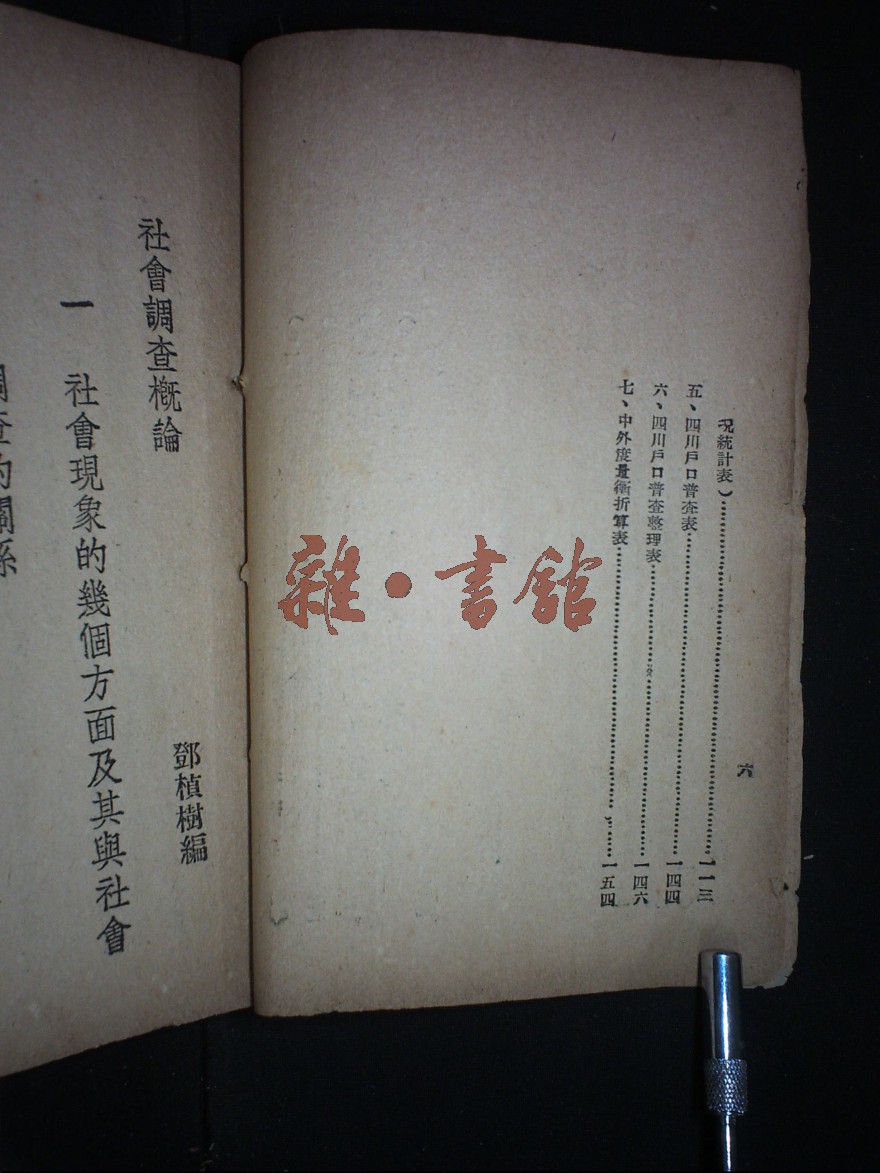 況統計表）……113
五、四川戶口普查表……一四四
六、四川戶口普查整理表……一四六
七、中外度量衡折算表……一五四
六
社會調查概論
鄧植樹編
一 社會現象的幾個方面及其與社會
調查的關係
雜·書館